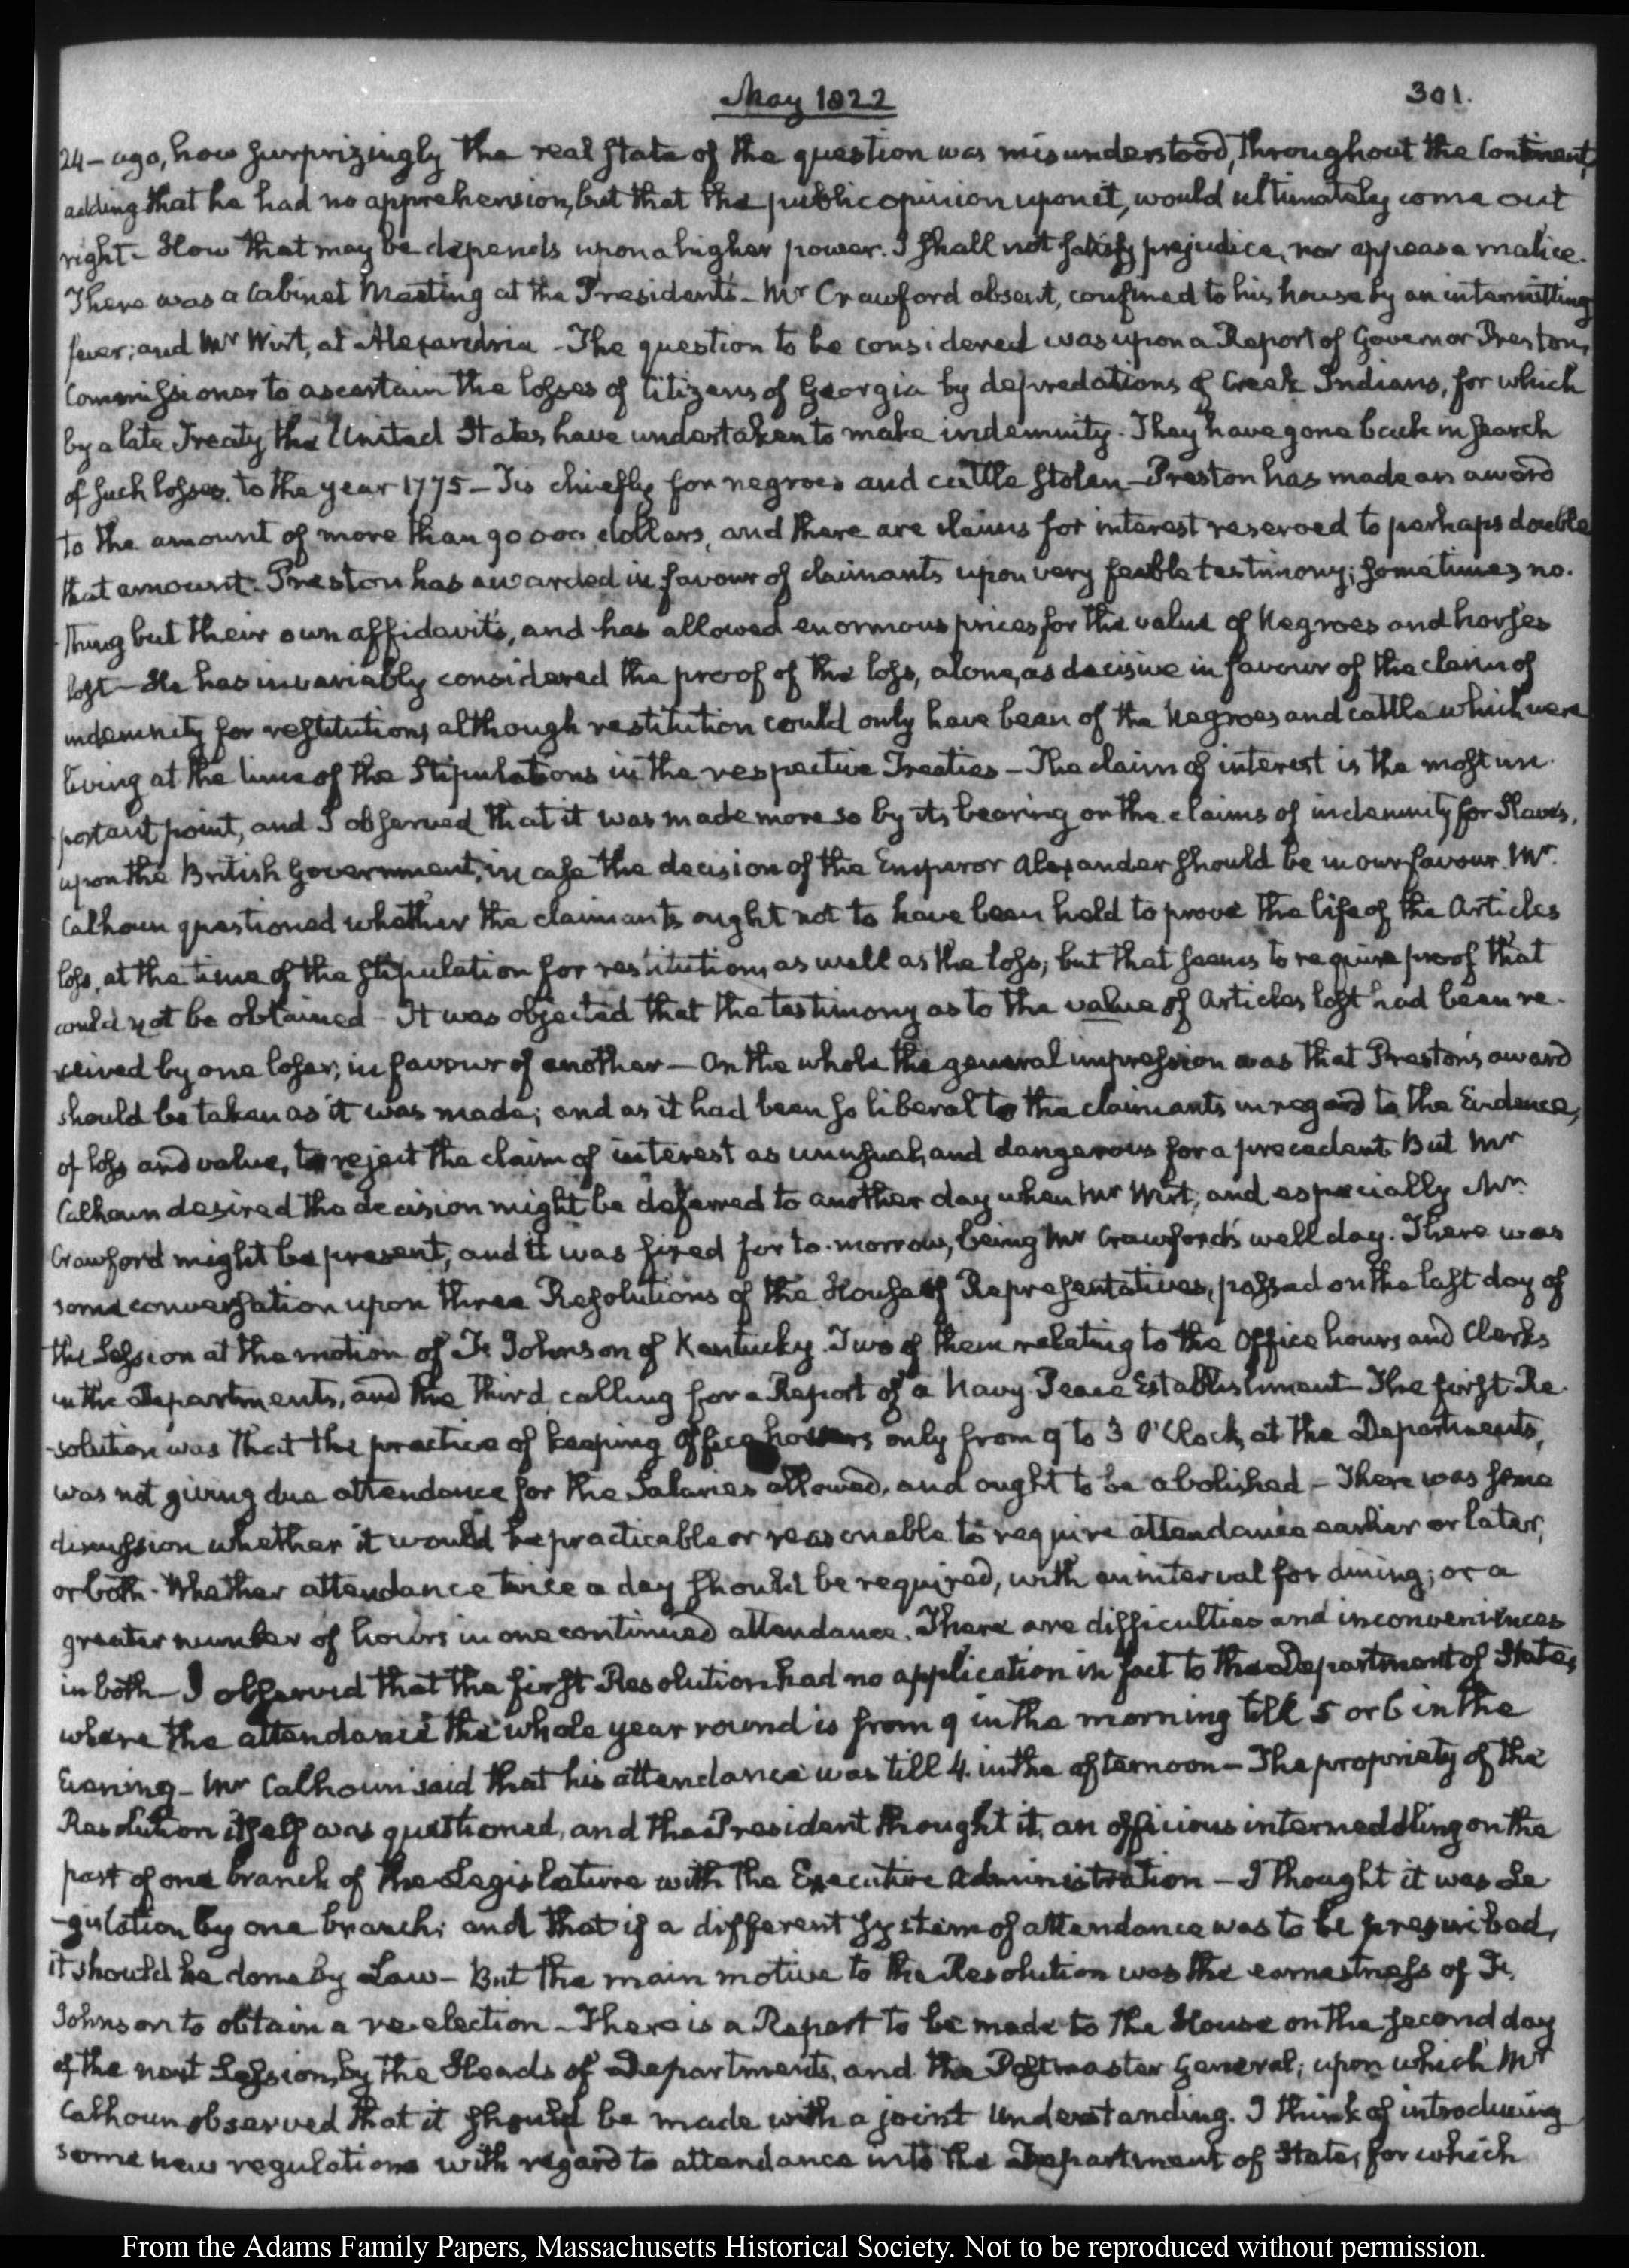 May 1822
301.
24 - ago, how surprizingly the real state of the question was misunderstood, throughout the Continent,
adding that he had no apprehension, but that the public opinion upon it, would ultimately come out
right - How that may be depends upon a higher power. I shall not satisfy prejudice, nor appease malice.
There was a Cabinet Meeting at the President's - Mr Crawford absent, confined to his house by an intermitting
fever; and Mr Wirt, at Alexandria - The question to be considered was upon a Report of Governor Preston,
Commissioner to ascertain the losses of Citizens of Georgia by depredations of Creek Indians, for which
by a late Treaty the United States have undertaken to make indemnity. They have gone back in search
of such losses, to the year 1775 - Tis chiefly for negroes and cattle stolen - Preston has made an award
to the amount of more than 90 000 dollars, and there are claims for interest reserved to perhaps double
that amount. Preston has awarded in favour of claimants upon very feeble testimony; sometimes no-
-thing but their own affidavits, and has allowed enormous prices for the value of Negroes and horses
lost - He has invariably considered the proof of the loss, alone, as decisive in favour of the claim of
indemnity for restitution, although restitution could only have been of the Negroes and cattle which were
living at the time of the Stipulations in the respective Treaties - The claim of interest is the most im-
-portant point, and I observed that it was made more so by its bearing on the claims of indemnity for Slaves,
upon the British Government, in case the decision of the Emperor Alexander should be in our favour. Mr.
Calhoun questioned whether the claimants ought not to have been held to prove the life of the Articles
loss, at the time of the stipulation for restitution, as well as the loss; but that seems to require proof that
could not be obtained - It was objected that the testimony as to the value of Articles lost had been re-
ceived by one loser, in favour of another - On the whole the general impression was that Preston's award
should be taken as it was made; and as it had been so liberal to the claimants in regard to the Evidence,
of loss and value, to reject the claim of interest as unusual, and dangerous for a precedent. But Mr
Calhoun desired the decision might be deferred to another day when Mr Wirt, and especially Mr.
Crawford might be present, and it was fixed for to-morrow, being Mr Crawford's well day. There was
some conversation upon three Resolutions of the House of Representatives, passed on the last day of
the Session at the motion of F. Johnson of Kentucky. Two of them relating to the Office hours and Clerks
in the Departments, and the third calling for a Report of a Navy Peace Establishment - The first Re-
-solution was that the practice of keeping Office hours only from 9 to 3 O'Clock, at the Departments,
was not giving due attendance for the Salaries allowed, and ought to be abolished - There was some
discussion whether it would be practicable or reasonable to require attendance earlier or later,
or both - Whether attendance twice a day should be required, with an interval for dining; or a
greater number of hours in one continued attendance. There are difficulties and inconveniences
in both - I observed that the first Resolution had no application in fact to the Department of State,
where the attendance the whole year round is from 9 in the morning till 5 or 6 in the
Evening - Mr Calhoun said that his attendance was till 4. in the afternoon - The propriety of the
Resolution itself was questioned, and the President thought it, an officious intermeddling on the
part of one branch of the Legislature with the Executive Administration - I thought it was Le-
-gislation by one branch; and that if a different system of attendance was to be prescribed,
it should be done by Law - But the main motive to the Resolution was the earnestness of F.
Johnson to obtain a re-election - There is a Report to be made to the House on the second day
of the next Session, by the Heads of Departments, and the Postmaster General; upon which Mr
Calhoun observed that it should be made with a joint Understanding. I think of introducing
some new regulations with regard to attendance into the Department of State, for which
From the Adams Family Papers, Massachusetts Historical Society. Not to be reproduced without permission.